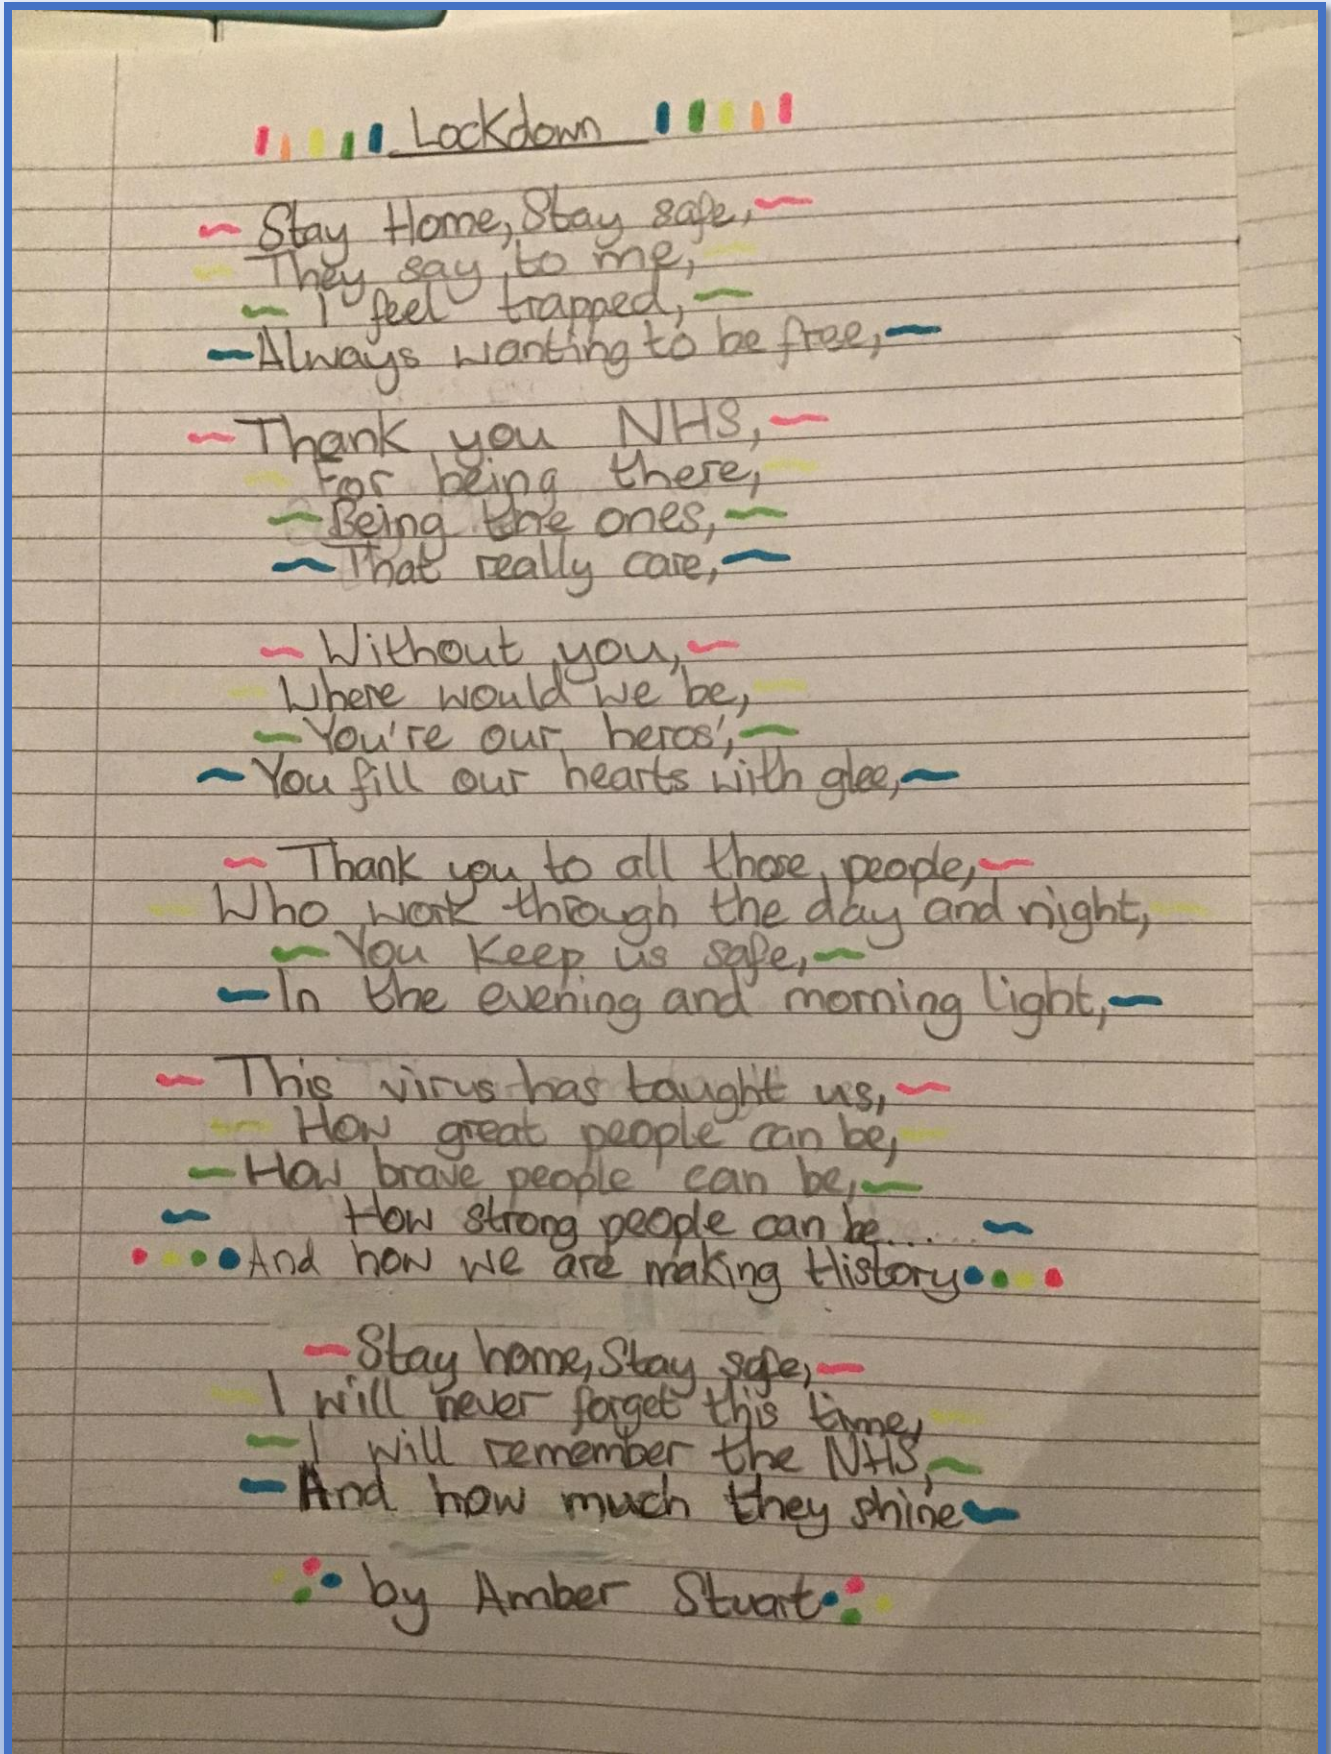 Lockdown
Stay Home, Stay safe,
They say to me,
I feel trapped,
Always wanting to be free,
Thank you NHS,
For being there,
Being the ones,
That really care,
Without you,
Where would we be,
You're our heros',
You fill our hearts with glee,
Thank you to all those people,
Who work through the day and night,
You Keep us safe,
In the evening and morning light,
This virus has taught us,
How great people can be,
How brave people can be,
How strong people can be.....
And how we are making History
Stay home, Stay safe,
I will never forget this time,
I will remember the NHS,
And how much they shine
by Amber Stuart